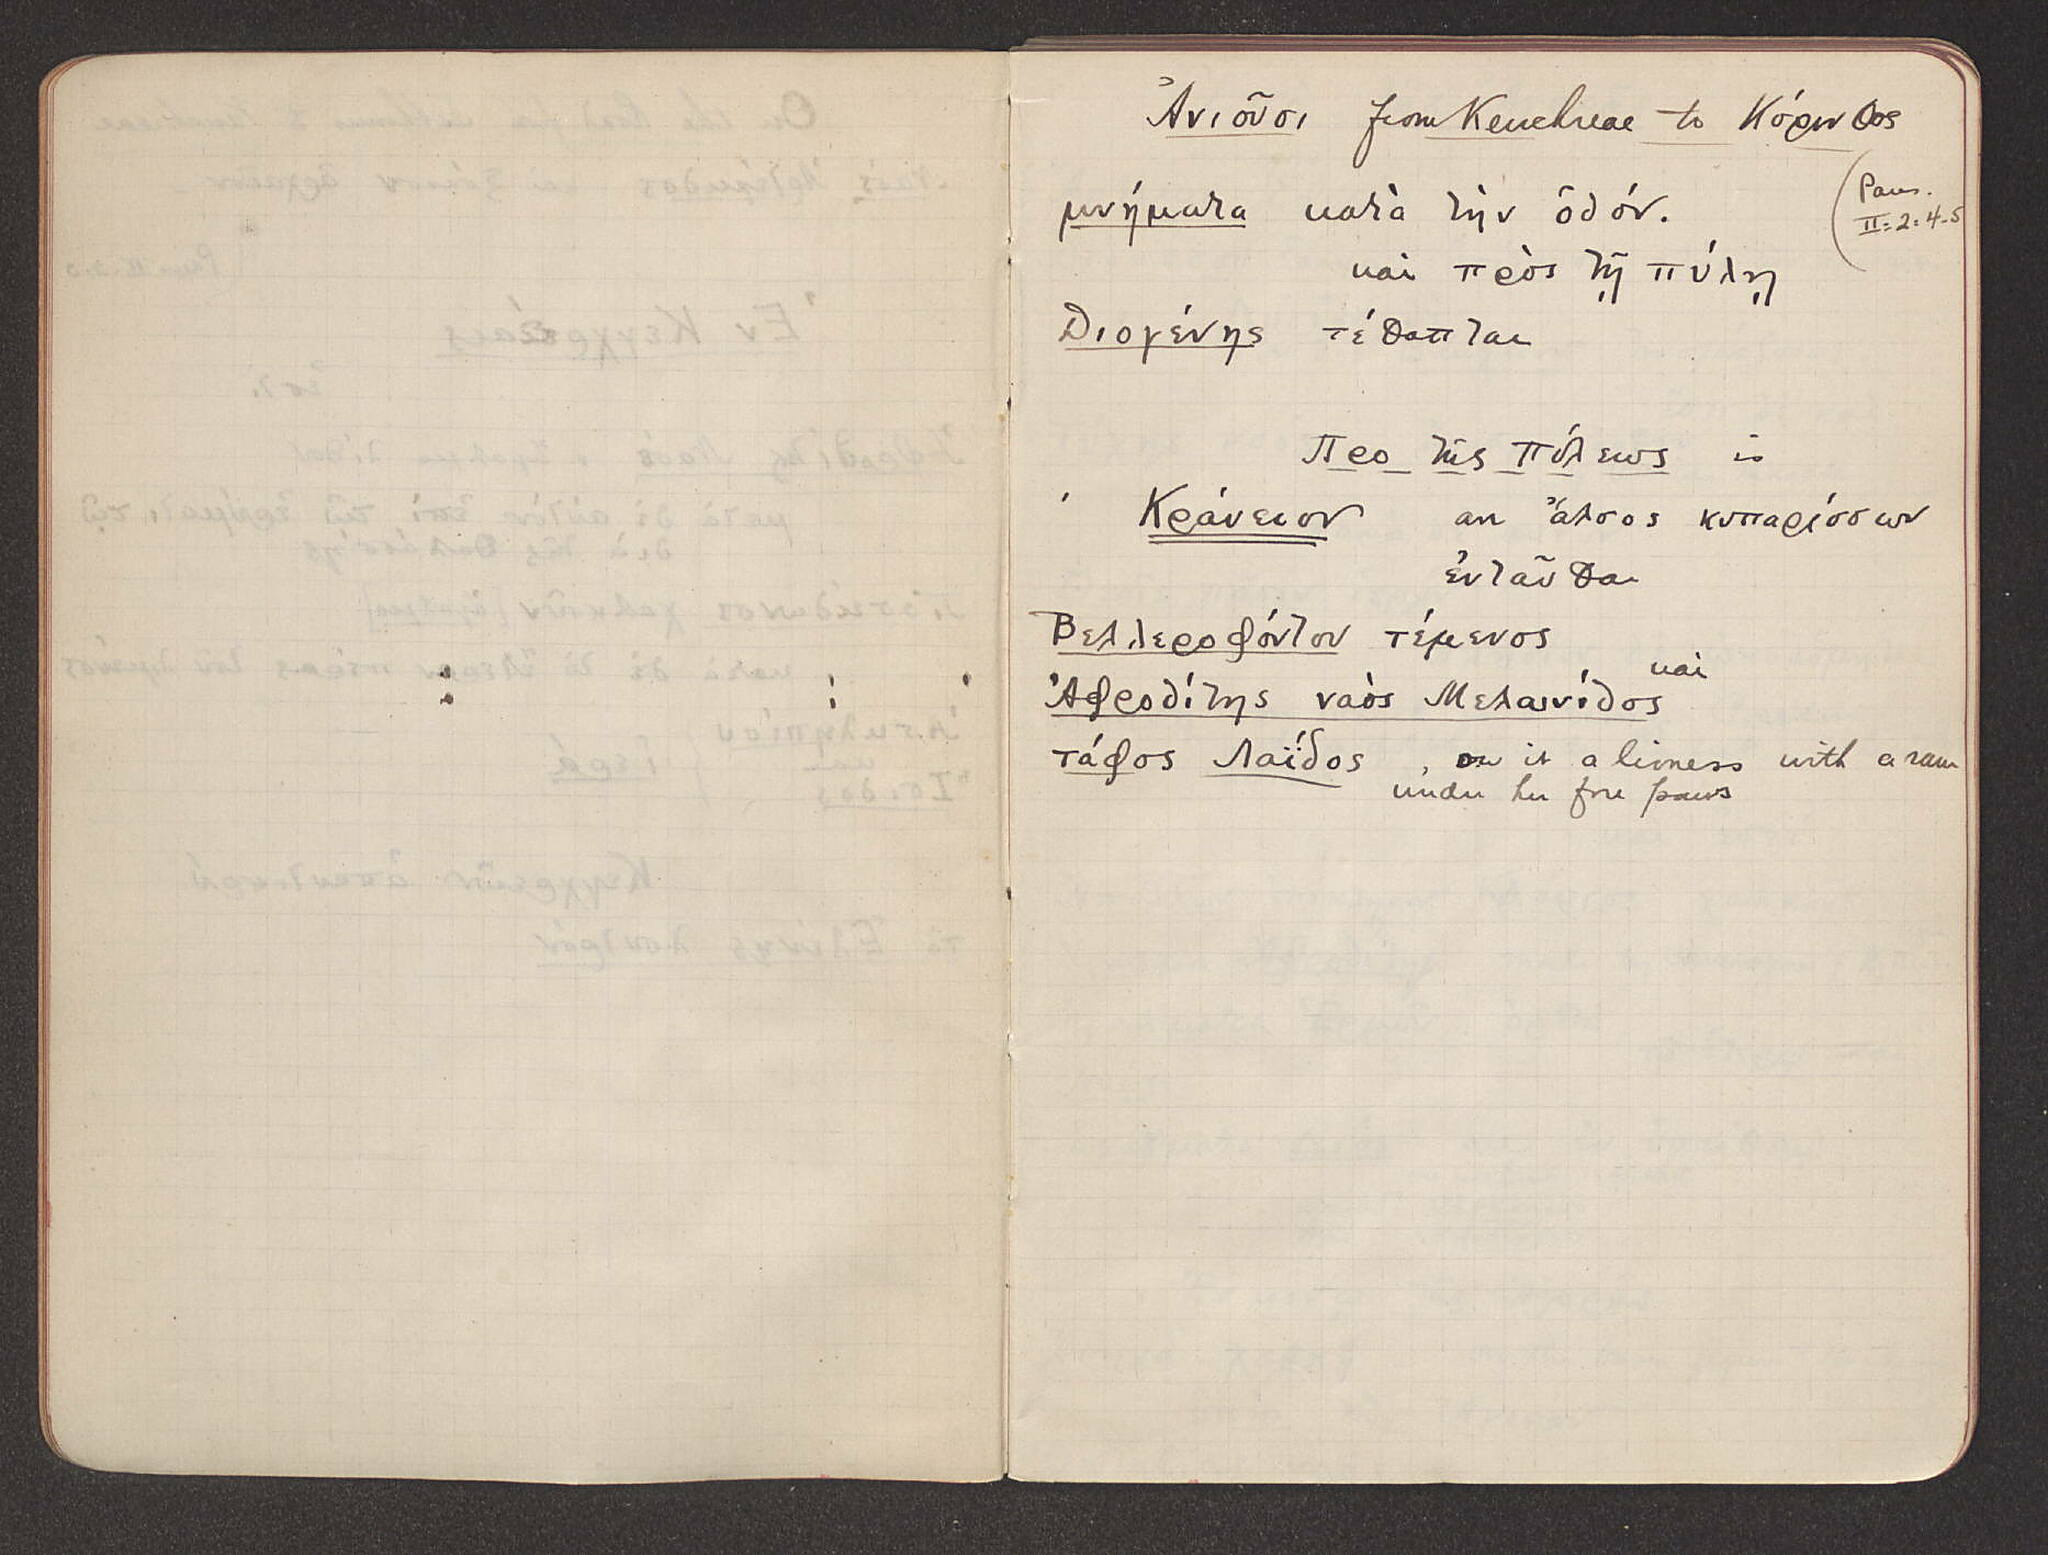 Ἀνιοῦσι from Kenchreae to Κόρινθος
(Paus.
II:2:4-5
μνήματα κατὰ τὴν ὁδόν.
καὶ πρὸς τῇ πύλῃ
Διογένης τέθαπται
Προ τῆς πόλεως is
Κράνειον an ἄλσος κυπαρίσσων
ἐνταῦθα
Βελλεροφόντου τέμενος
καὶ
Ἀφροδίτης ναὸς Μελαινίδος
τάφος Λαΐδος, on it a lioness with a ram
under her fore paws